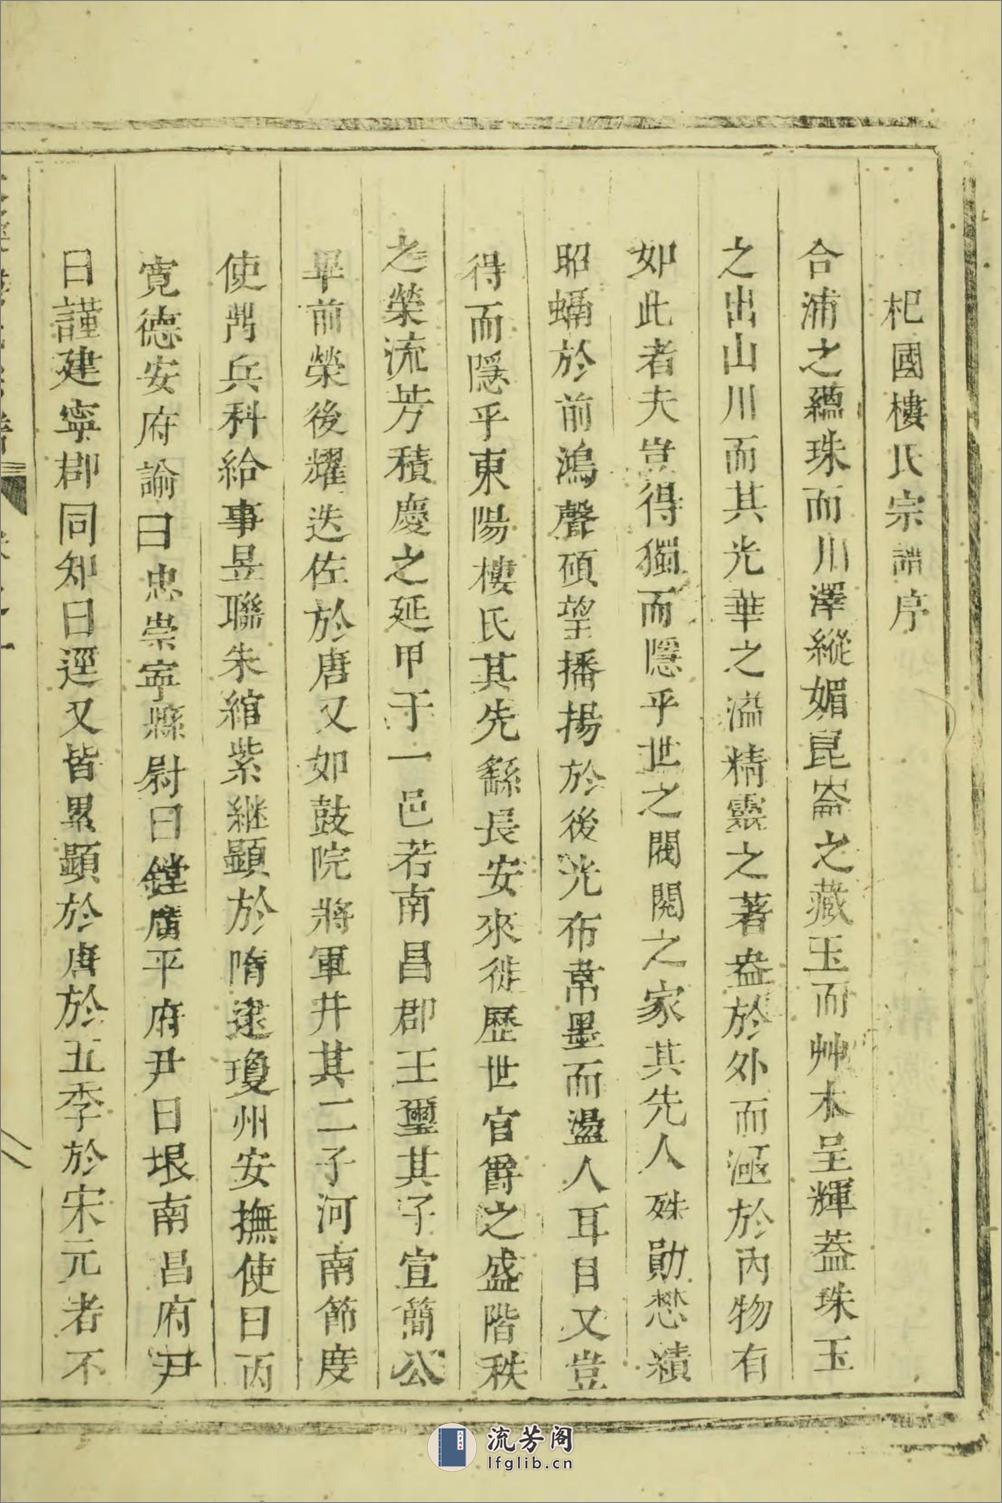 杞國樓氏宗譜序
合浦之蘊珠而川澤縱媚崑崙之藏玉而艸木呈輝葢珠玉
之出山川而其光華之溢精靈之著盎於外而涵於內物有
如此者夫豈得獨而隱乎世之閥閱之家其先人殊勛懋績
昭蟎於前鴻聲碩望播揚於後光布常墨而盪人耳目又豈
得而隱乎東陽樓氏其先繇長安來徙歷世官爵之盛階秩
之榮流芳積慶之延甲于一邑若南昌郡王璽其子宣簡公
畢前榮後耀迭佐於唐又如鼓院將軍井其二子河南節度
使閅兵科給事昱聯朱綰紫継顯於隋逮瓊州安撫使曰丙
寬德安府諭曰忠崇寧縣尉曰鏜廣平府尹曰垠南昌府尹
曰謹建寧郡同知曰逕又皆累顯於唐於五季於宋元者不
卷之一
流芳阁
lfglib.cn